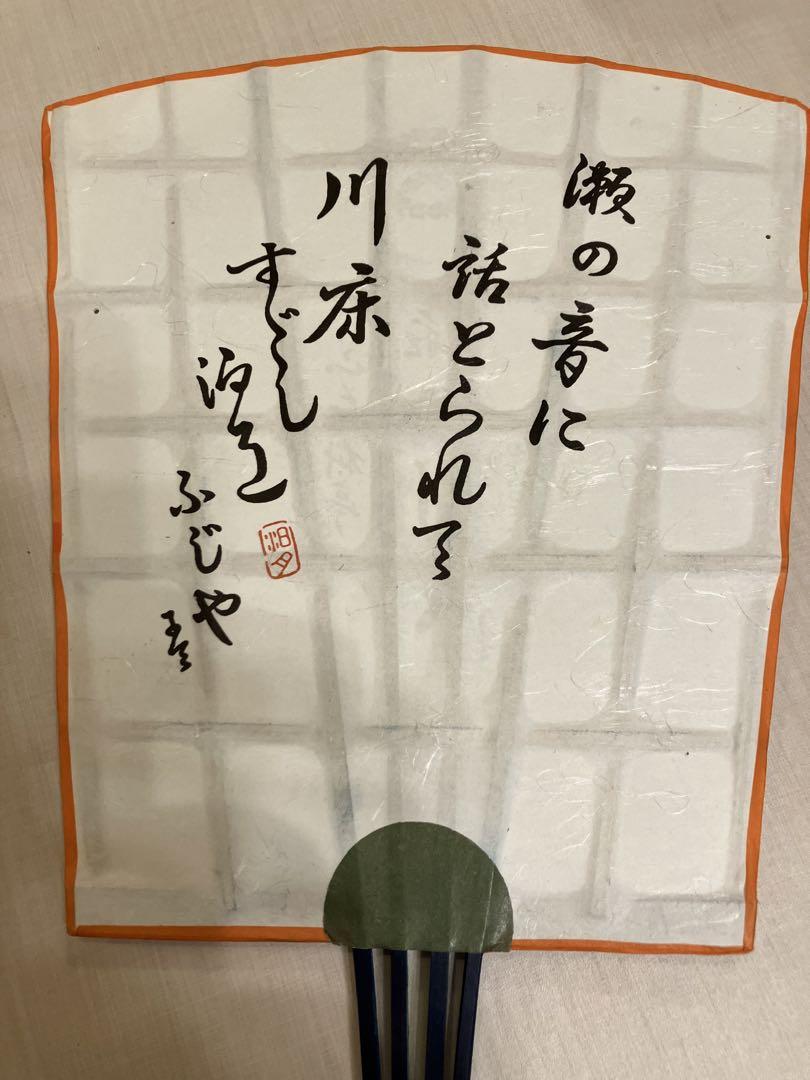 瀬の音に
話とられて
川床
すゞし
泊月
ふじや
泊月